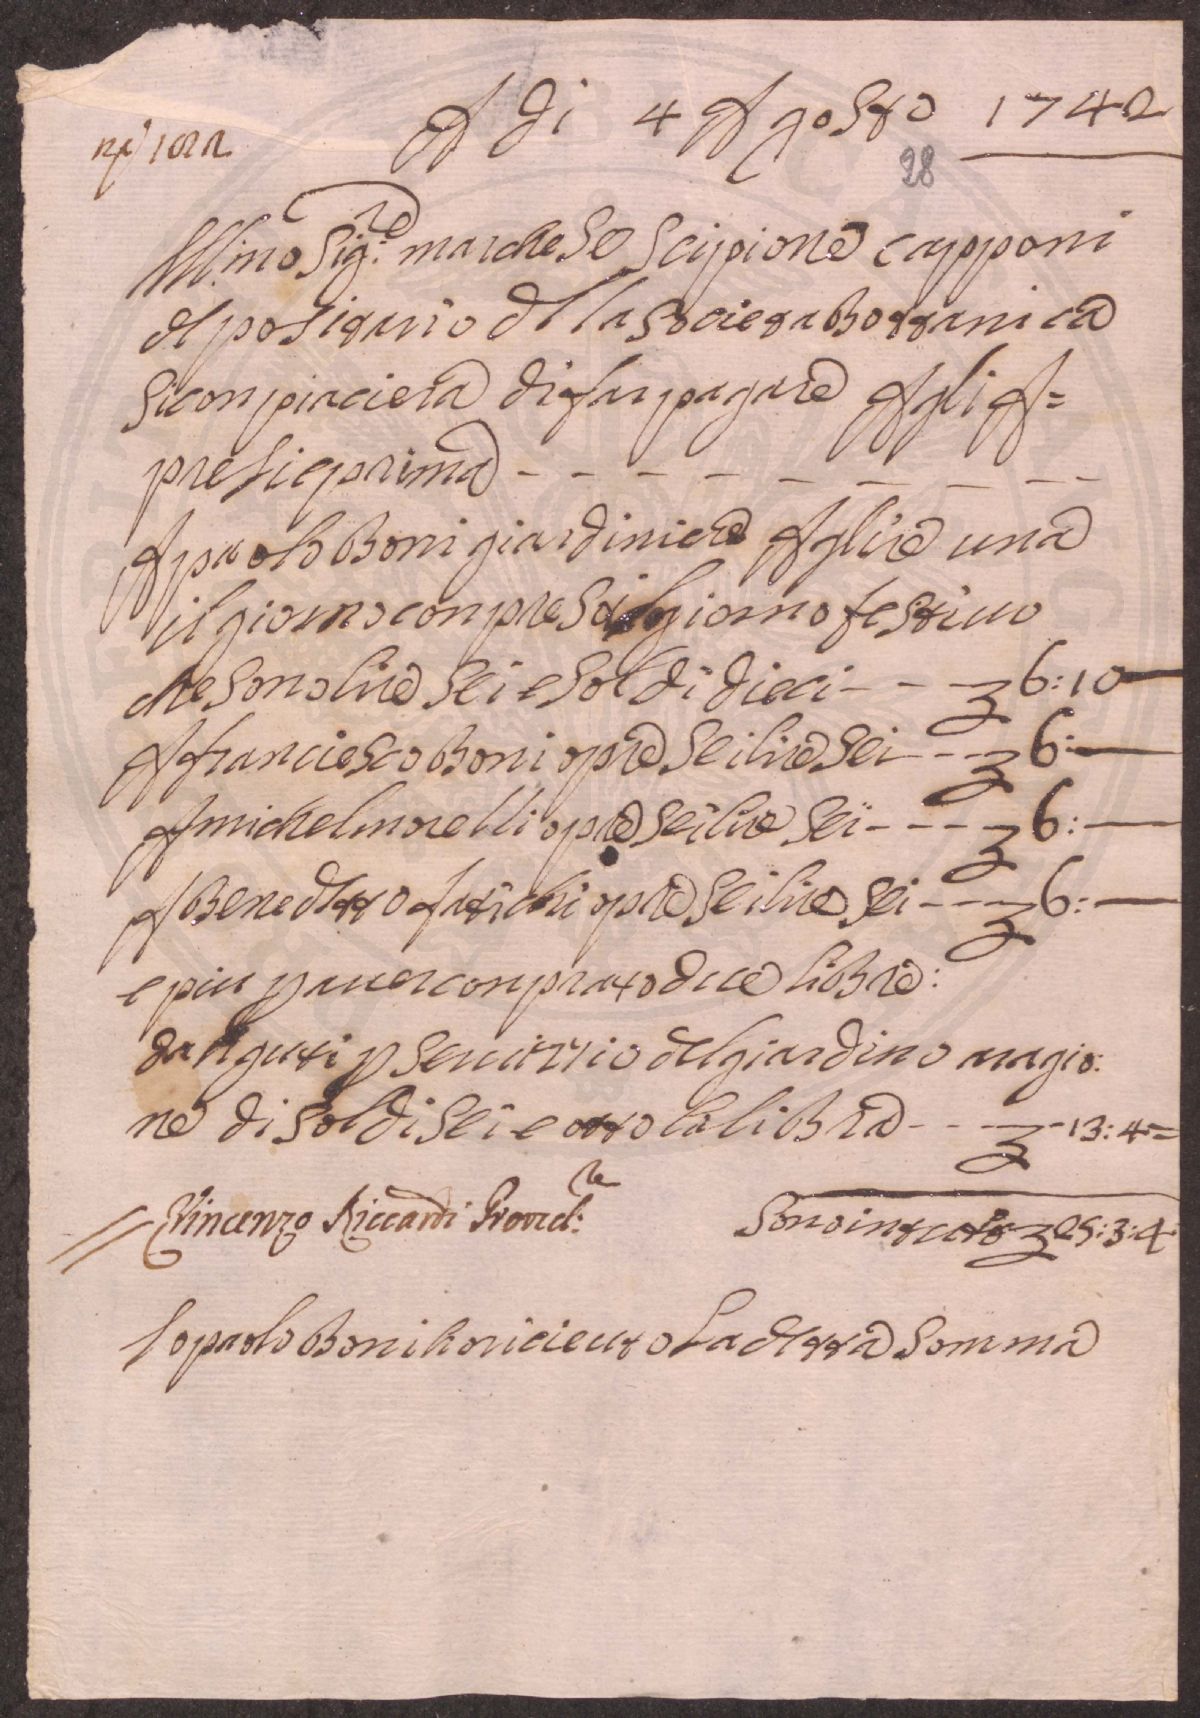 A di 4 Agosto 1742
28
Ill.mo Sig.re marchese Scipione Capponi
depositario della Societa Bottanica
Si conpiacierà di far pagare Agli A=
presie prima - - - - - - - - -
A paolo Boni giardiniere A lire una
il giorno conpreso il giorno festiuo
che sono lire sei e soldi dieci - - - 6:10
A franciesco Boni opre sei lire sei - - 6:
A michel morelli opre sei lire sei - - - - 6:
A Benedetto opre sei lire sei - - - 6:
e piu p auer conprato libre:
p seruitio del giardino a ragio:
ne di soldi sei e otto la libra - - - 13:4=
Vincenzo Riccardi Proved.re
Sono in tutto 25:3:4
Io paolo Boni ho riceuto la detta Somma